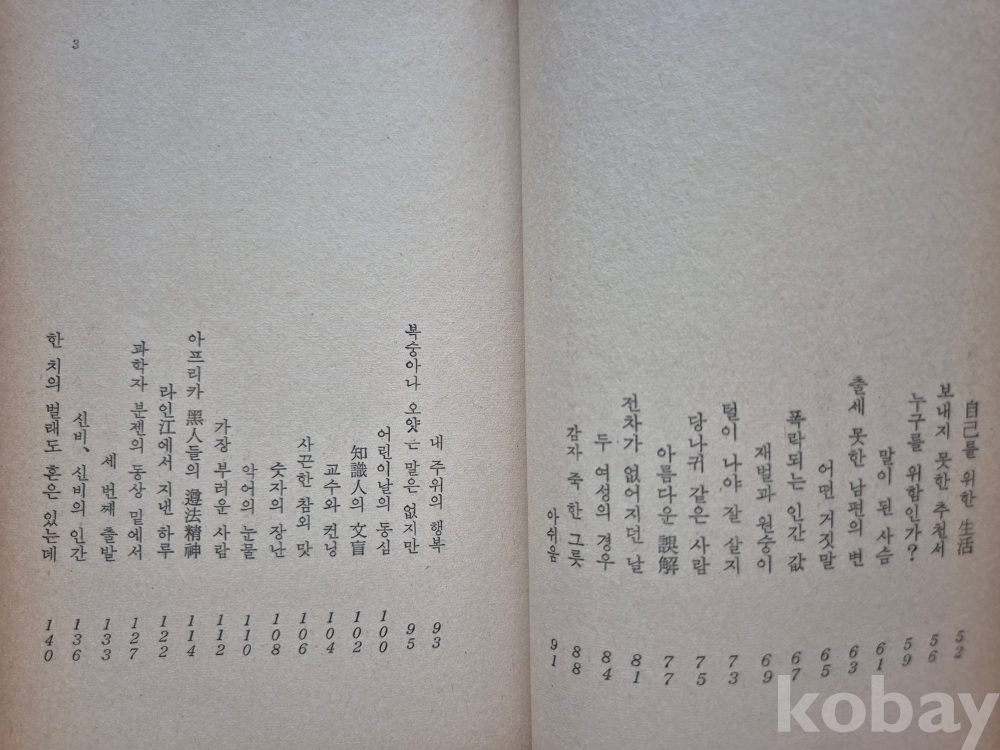 自己를 위한 生活 52
보내지 못한 추천서 56
누구를 위함인가? 59
말이 된 사슴 61
출세 못한 남편의 변 63
어떤 거짓말 65
폭락되는 인간 값 67
재벌과 원숭이 69
털이 나야 잘 살지 73
당나귀 같은 사람 75
아름다운 誤解 77
전차가 없어지던 날 81
두 여성의 경우 84
감자 죽 한 그릇 88
아쉬움 91
내 주위의 행복 93
복숭아나 오얏은 말은 없지만 95
어린이날의 동심 100
知識人의 文盲 102
교수와 컨닝 104
사끈한 참외 맛 106
숫자의 장난 108
악어의 눈물 110
가장 부러운 사람 112
아프리카 黑人들의 遵法精神 114
라인江에서 지낸 하루 122
과학자 분젠의 동상 밑에서 127
세 번째 출발 133
신비、신비의 인간 136
한 치의 벌래도 혼은 있는데 140
3
kobay